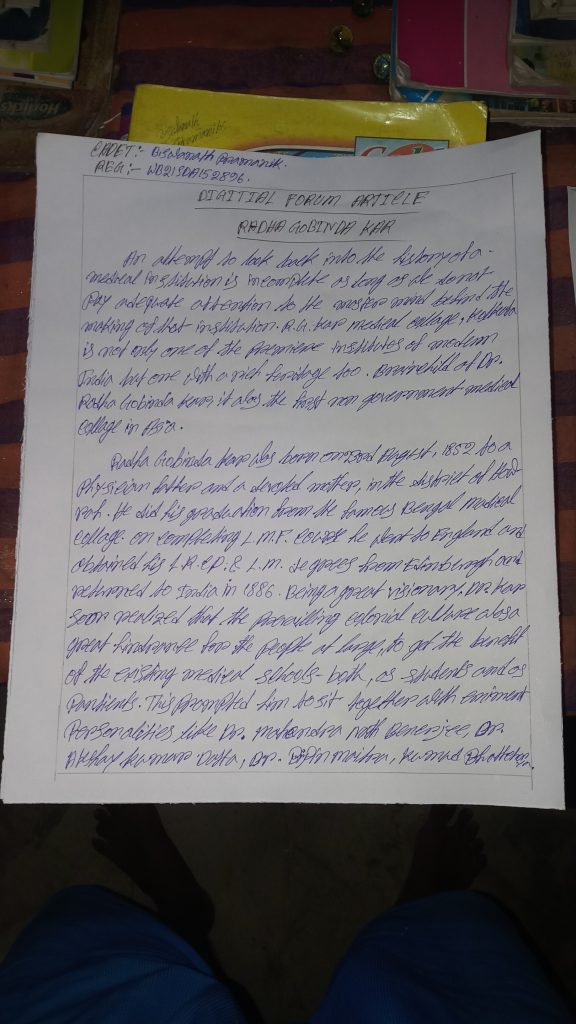 Horlicks
Biswanath
Pramanik
CADET:- Biswanath Pramanik.
REG:- WB21SDA152896.
DIGITIAL FORUM ARTICLE
RADHA GOBINDA KAR
An attempt to look back into the history of a
medical institution is incomplete as long as we do not
Pay adequate attention to the master mind behind the
making of that institution. R.G. kar medical collage, Kolkata
is not only one of the premiere institutes of modern
India but one with a rich heritage too. Brainchild of Dr.
Radha Gobinda kar, it was the first non government medical
collage in Asia.
Radha Gobinda kar was born on 23rd August, 1852 to a
Physician father and a devoted mother, in the district of How-
rah. He did his graduation from the famous Bengal medical
collage. on completing L.M.F. course he went to England and
obtained his L.R.C.P. & L.M. degrees from Edinburgh and
returned to India in 1886. Being a great visionary, Dr. kar
soon realized that the prevailing colonial culture was a
great hindrance for the people at large, to get the benefit
of the existing medical schools- both, as students and as
Pantients. This prompted him to sit together with eminent
Personalities like Dr. mahendra nath Banerjee, Dr.
Akshay kumar Datta, Dr. Bipin maitra, kumud Bhattacharya.